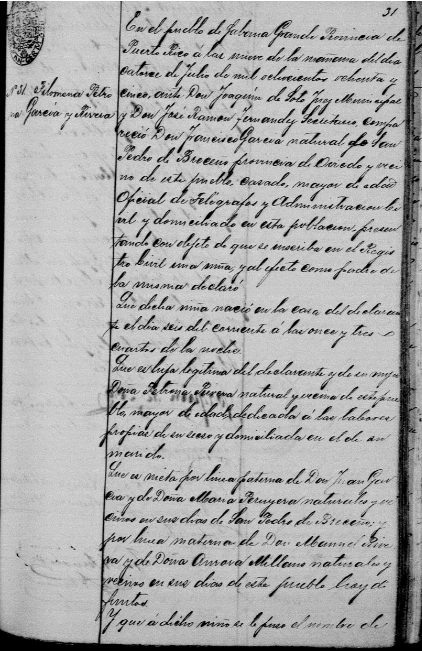 31
Nº 31. Filomena Petro
na Garcia y Rivera
En el pueblo de Sabana Grande Provincia de
Puerto Rico á las nueve de la mañana del dia
catorce de Julio de mil ochocientos ochenta y
cinco, ante Don Joaquin de Soto Juez Municipal
y Don José Ramon Fernandez Secretario, compa
reció Don Francisco Garcia natural de San
Pedro de Breceño provincia de Oviedo y veci
no de este pueblo, casado, mayor de edad
Oficial de Telégrafos y Administracion
y domiciliado en esta poblacion presen
tando con objeto de que se inscriba en el Regis
tro Civil una niña, y al efecto como padre de
la misma declaró
Que dicha niña nació en la casa del declaran
te el dia seis del corriente á las once y tres
cuartos de la noche.
Que es hija legítima del declarante y de su mujer
Doña Petrona Rivera natural y vecina de este pue
blo, mayor de edad, dedicada á las labores
propias de su sexo y domiciliada en el de su
marido.
Que es nieta por linea paterna de Don Juan Gar
cia y de Doña Maria naturales y ve
cinos en sus dias de San Pedro de Breceño; y
por linea materna de Don Manuel Rive
ra y de Doña Aurora naturales y
vecinos en sus dias de este pueblo hoy di
funtos.
Y que á dicho niño se le puso el nombre de